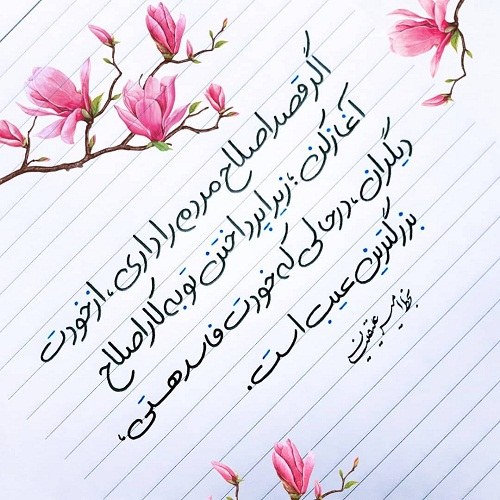 اگر قصد اصلاح مردم را داری، از خودت
آغاز کن؛ زیرا پرداختن تو به کار اصلاح
دیگران، در حالی که خودت فاسد هستی،
بزرگترین عیب است.
بخط امیر عقیقیان